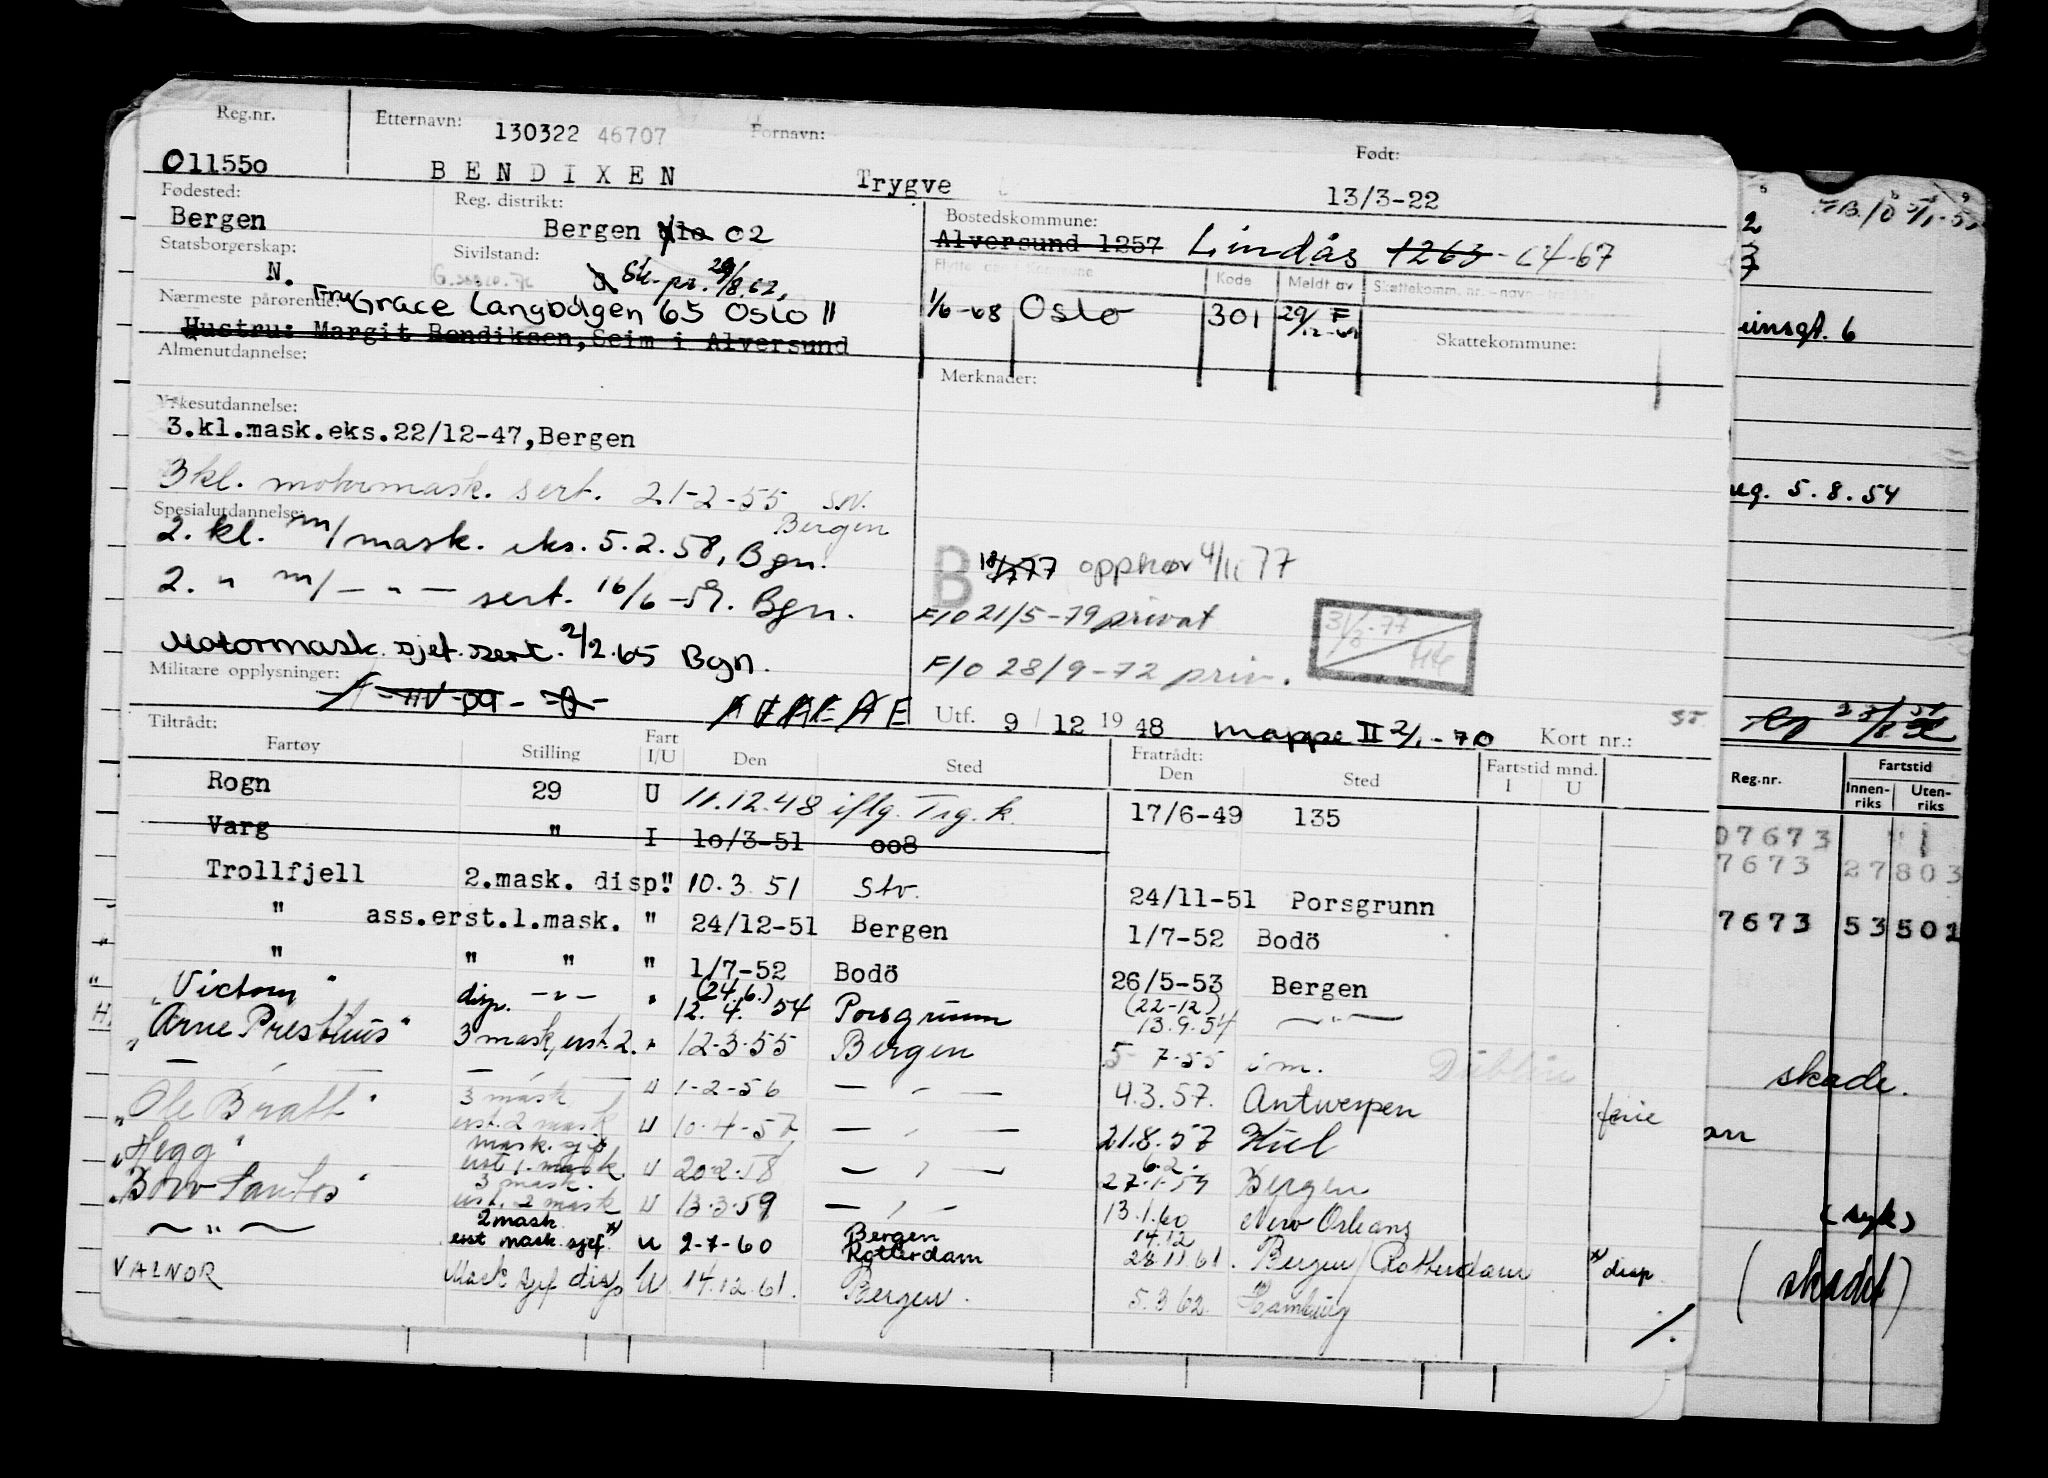 Reg.nr. Etternavn: 130322 46707 Fornavn: Født:
011550 BENDIXEN Trygve 13/3-22
Fødested: Reg. distrikt: Bostedskommune:
Bergen Bergen 02 Alversund 1257 Lindås 1263
Statsborgerskap: Sivilstand:
N.
Kode Meldt av
Nærmeste pårørende: Fru Grace Langbölgen 65 Oslo 11
1/6-68 Oslo 301
Hustru: Margit Bendiksen, Seim i Alversund
Skattekommune:
Almenutdannelse: Merknader:
Yrkesutdannelse:
3.kl.mask.eks.22/12-47, Bergen
3 kl. motormask. sert. 21-2-55
Bergen
Spesialutdannelse:
2. kl. m/mask. eks. 5.2.58, Bgn.
2. " m/ — " — sert. 16/6-59. Bgn.
Motormask. sjef. sert. 2/2.65 Bgn.
B opphør 4/11 77
F/O 21/5-79 privat
F/O 28/9-72 priv.
Militære opplysninger:
Utf. 9 / 12 19 48 Mappe II 2/1-70 Kort nr.:
Tiltrådt: Fratrådt:
Fartøy Stilling Fart I/U Den Sted Den Sted Fartstid mnd. I U
Rogn 29 U 11.12.48 iflg. Trg. k. 17/6-49 135
Varg " I 10/3-51 008
Trollfjell 2.mask. disp. " 10.3.51 Stv. 24/11-51 Porsgrunn
" ass.erst.1.mask. " 24/12-51 Bergen 1/7-52 Bodö
" " " " 1/7-52 Bodö 26/5-53 Bergen
(24.6.) (22-12)
"Victoria" disp. — " — " 12.4.54 Porsgrunn 13.9.54 — " —
"Arne Presthus" 3 mask, erst. 2. " 12-3-55 Bergen 5-7-55 i m. Dublin
— " — — " — U 1-2-56 — " — 4.3.57. Antwerpen ferie
"Ole Bratt" 3 mask erst. 2 mask U 10-4-57 — " — 21.8.57 Kiel
"Hegg" mask. sjef erst 1. mask. U 20-2-58 — " — 6.2. 27-1-59 Bergen
"Bow Santos" 3 mask. erst. 2 mask U 13-3-59 — " — 13.1.60 New Orleans
— " — 2 mask. erst mask. sjef. x) U 2-7-60 Bergen Rotterdam 14.12 28.11.61. Bergen/Rotterdam x) disp.
VALNOR Mask sjef disp U 14.12.61. Bergen. 5.3.62. Hamburg
./.
5.8.54
Reg.nr. Fartstid
Innenriks Utenriks
07673
7673 27803
7673 53501
skade.
(syk)
(skadet)